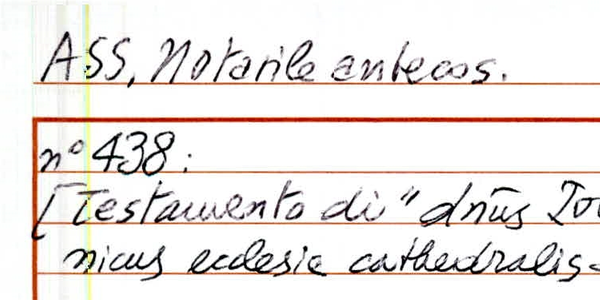 ASS, Notarile antecos.
n° 438:
[Testamento di "dn̄us
nicus ecclesie cathedralis